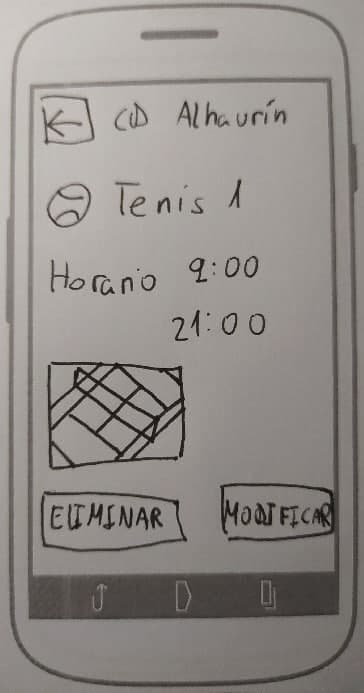 CD Alhaurín
Tenis 1
Horario 9:00
21:00
ELIMINAR
MODIFICAR